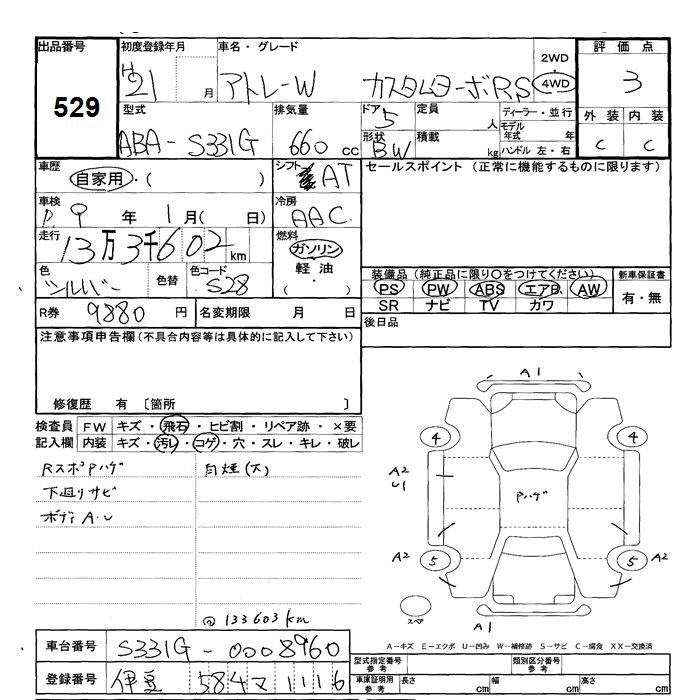 出品番号
529
初度登録年月
H 21 月
車名・グレード
アトレーW カスタムターボRS
2WD
・
4WD
評価点
3
型式
ABA-S331G
排気量
660 cc
ドア
5
定員
人
形状
BW
積載
kg
ディーラー・並行
モデル年式 年
ハンドル 左・右
外装 内装
C C
車歴
自家用・( )
シフト
AT
セールスポイント(正常に機能するものに限ります)
車検
R 9 年 1 月( 日)
冷房
AAC
走行
13万3千602 km
燃料
ガソリン
軽油
( ・ )
色
シルバー
色替
色コード
S28
装備品(純正品に限り○をつけてください)
PS PW ABS エアB AW
SR ナビ TV カワ
新車保証書
有・無
R券 9880 円
名変期限 月 日
後日品
注意事項申告欄(不具合内容等は具体的に記入して下さい)
修復歴 有 〔箇所 〕
検査員記入欄
FW キズ・飛石・ヒビ割・リペア跡・×要
内装 キズ・汚レ・コゲ・穴・スレ・キレ・破レ
RスポPハゲ
下廻リサビ
ボディA.U
白煙(大)
@133603km
A1
4 4
A2
U1
Pハゲ
A2 5 5 A2
スペア
A1
A-キズ E-エクボ U-凹み W-補修跡 S-サビ C-腐食 XX-交換済
車台番号 S331G-0008960
登録番号 伊豆 584 マ 1116
型式指定番号
参考
類別区分番号
参考
車庫証明用
参考
長さ cm
幅 cm
高さ cm